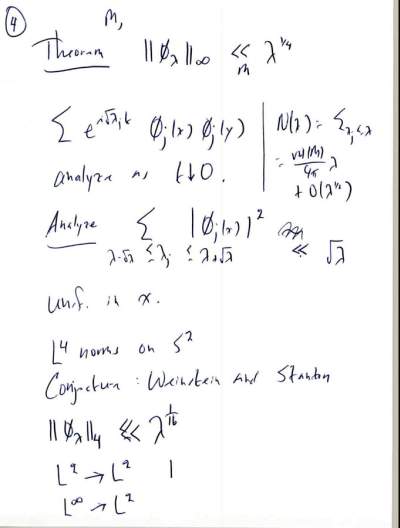 ④
M,
Theorem ‖φ_λ‖_∞ ≪_M λ^{1/4}
Σ e^{i√λ_j t} φ_j(x) φ_j(y)
analyze as t↓0.
N(λ) = Σ_{λ_j ≤ λ}
= vol(M)/4π λ
+ O(λ^{1/2})
Analyze Σ_{λ-√λ ≤ λ_j ≤ λ+√λ} |φ_j(x)|² ≪ √λ
unif. in x.
L⁴ norms on S²
Conjecture: Weinstein and Stanton
‖φ_λ‖_4 ≪ λ^{1/16}
L² → L² 1
L^∞ → L²